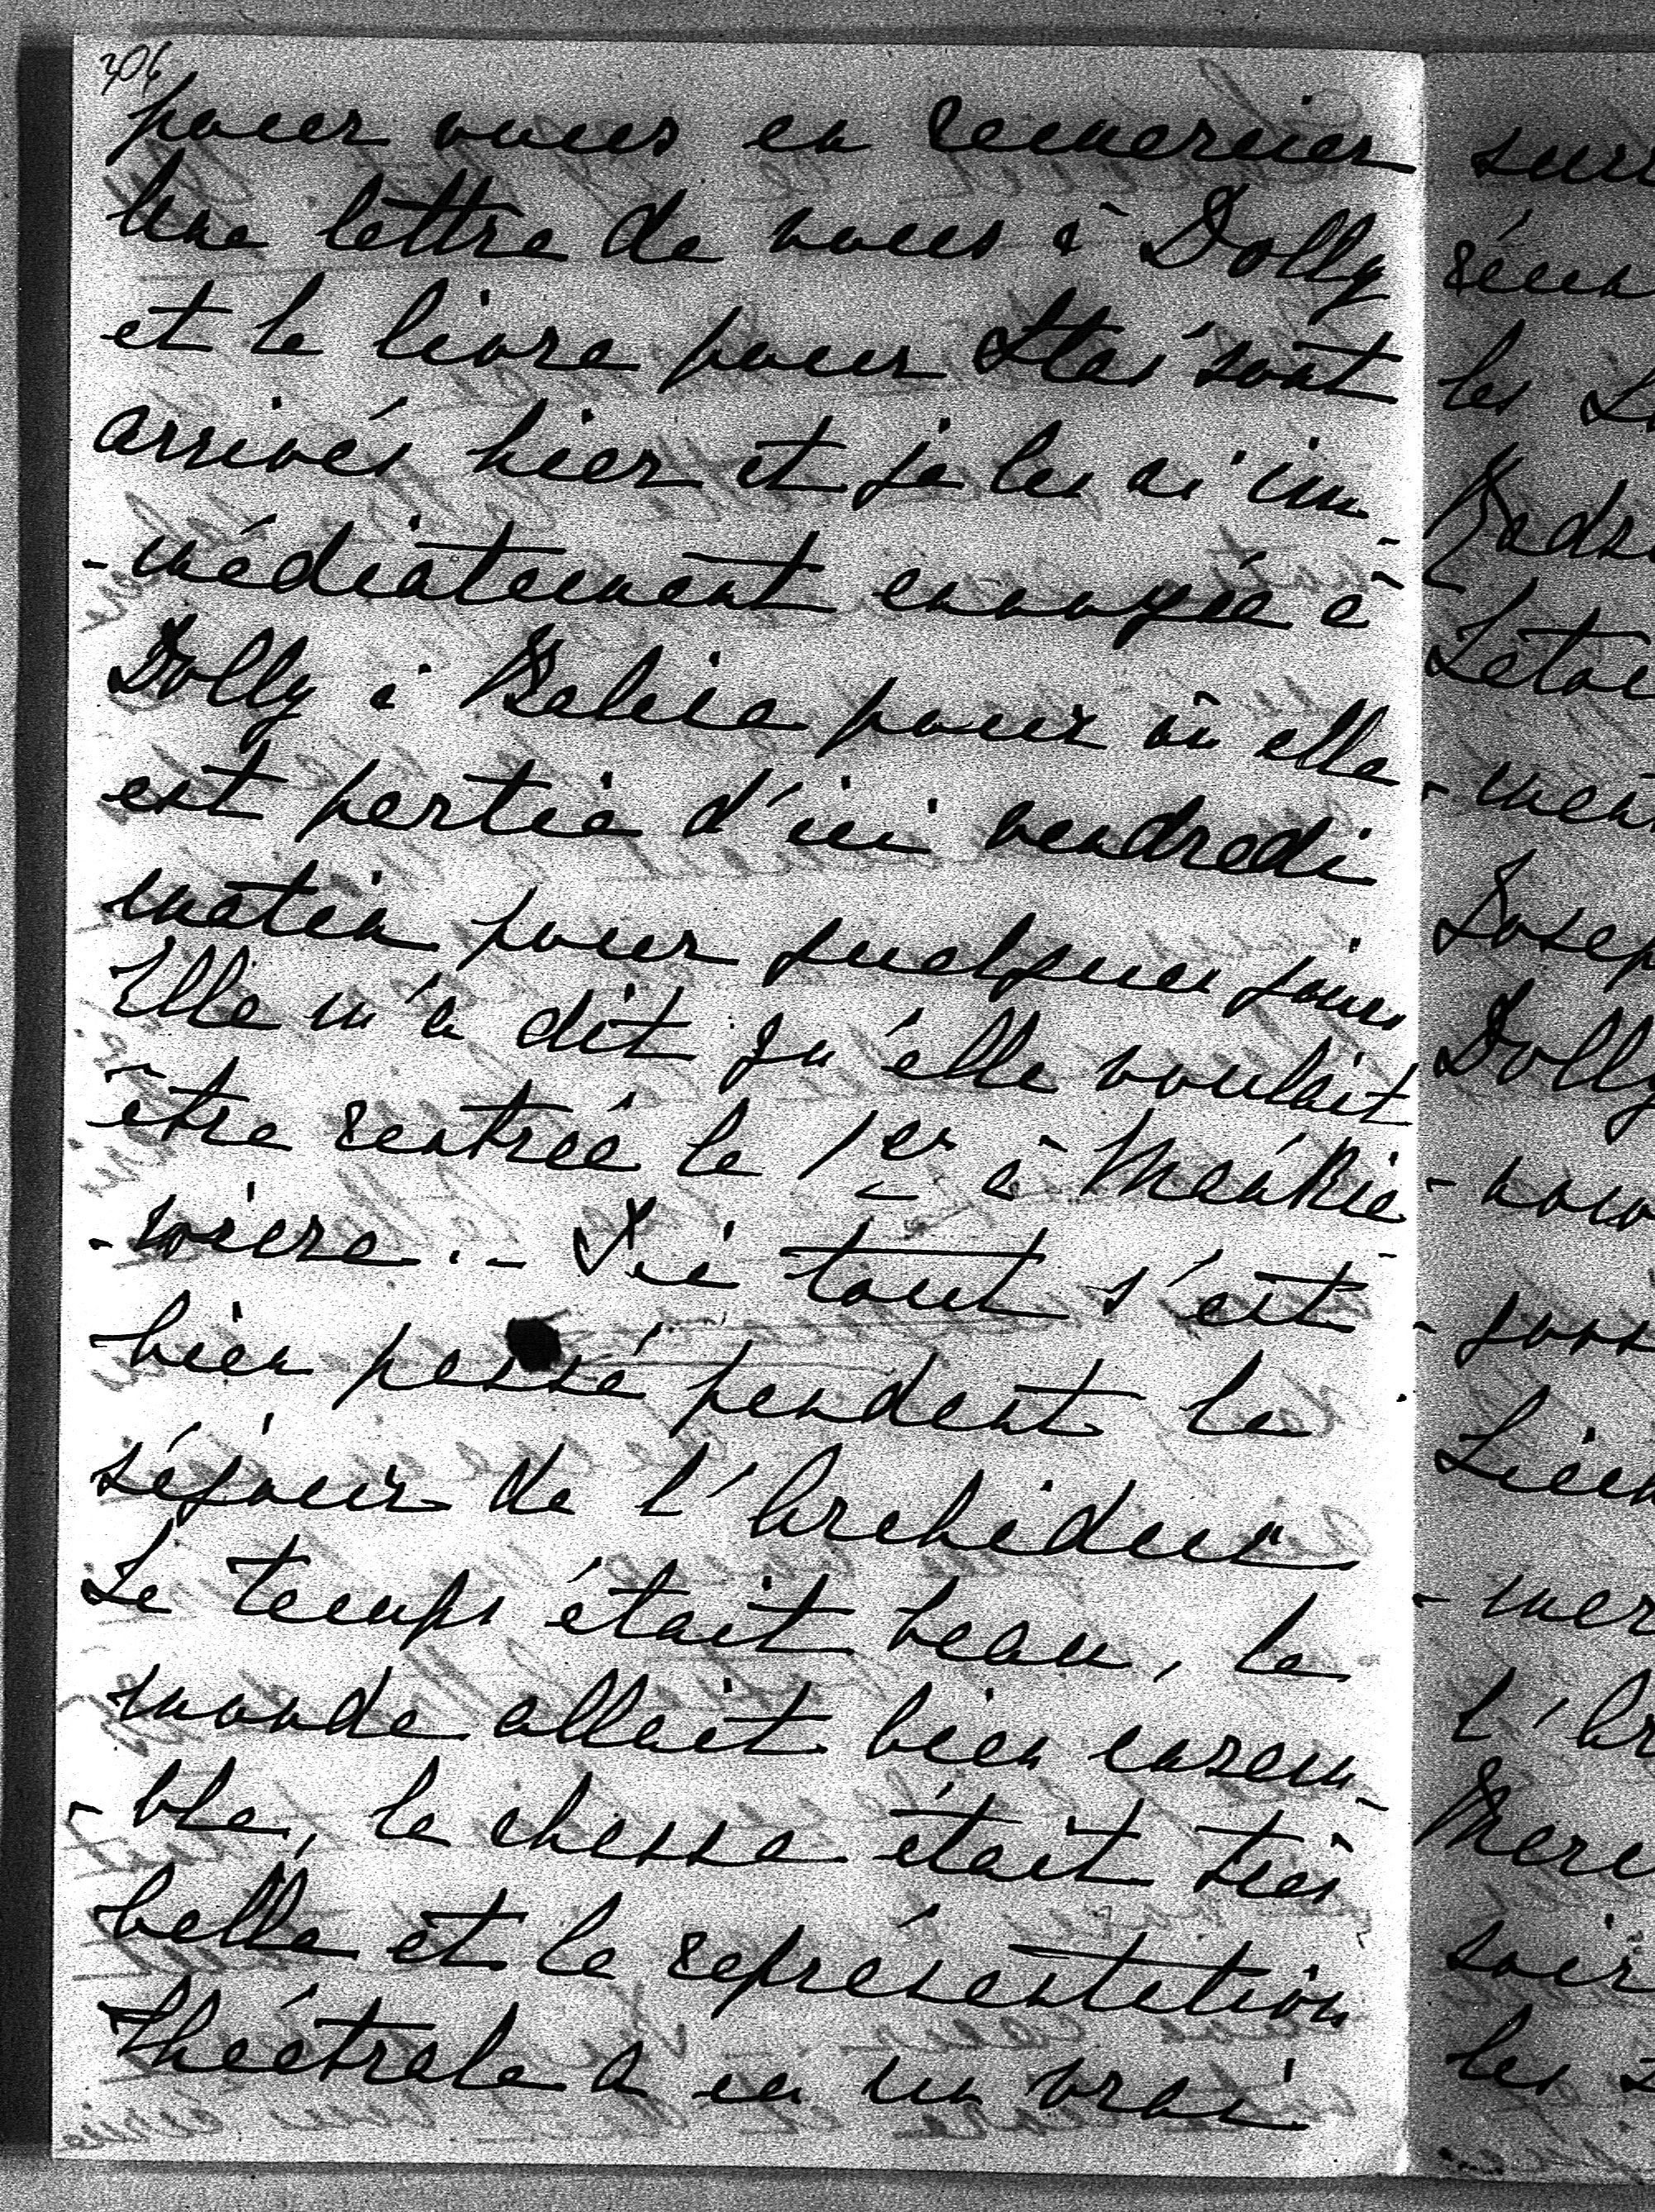 306
pour vous en remercier
Une lettre de vous à Dolly
et le livre pour Stas sont
arrivés hier et je les ai im-
-médiatement envoyée à
Dolly à Balice pour où elle
est partie d'ici vendredi
matin pour quelques jours
Elle m'a dit qu'elle voulait
être rentrée le 1er à Mańkie-
-wicze.- Ici tout s'est
bien passé pendant le
séjour de l'Archiduc
Le temps était beau, le
monde allait bien ensem-
-ble, la chasse était très
belle et la représentation
théâtrale a eu un vrai